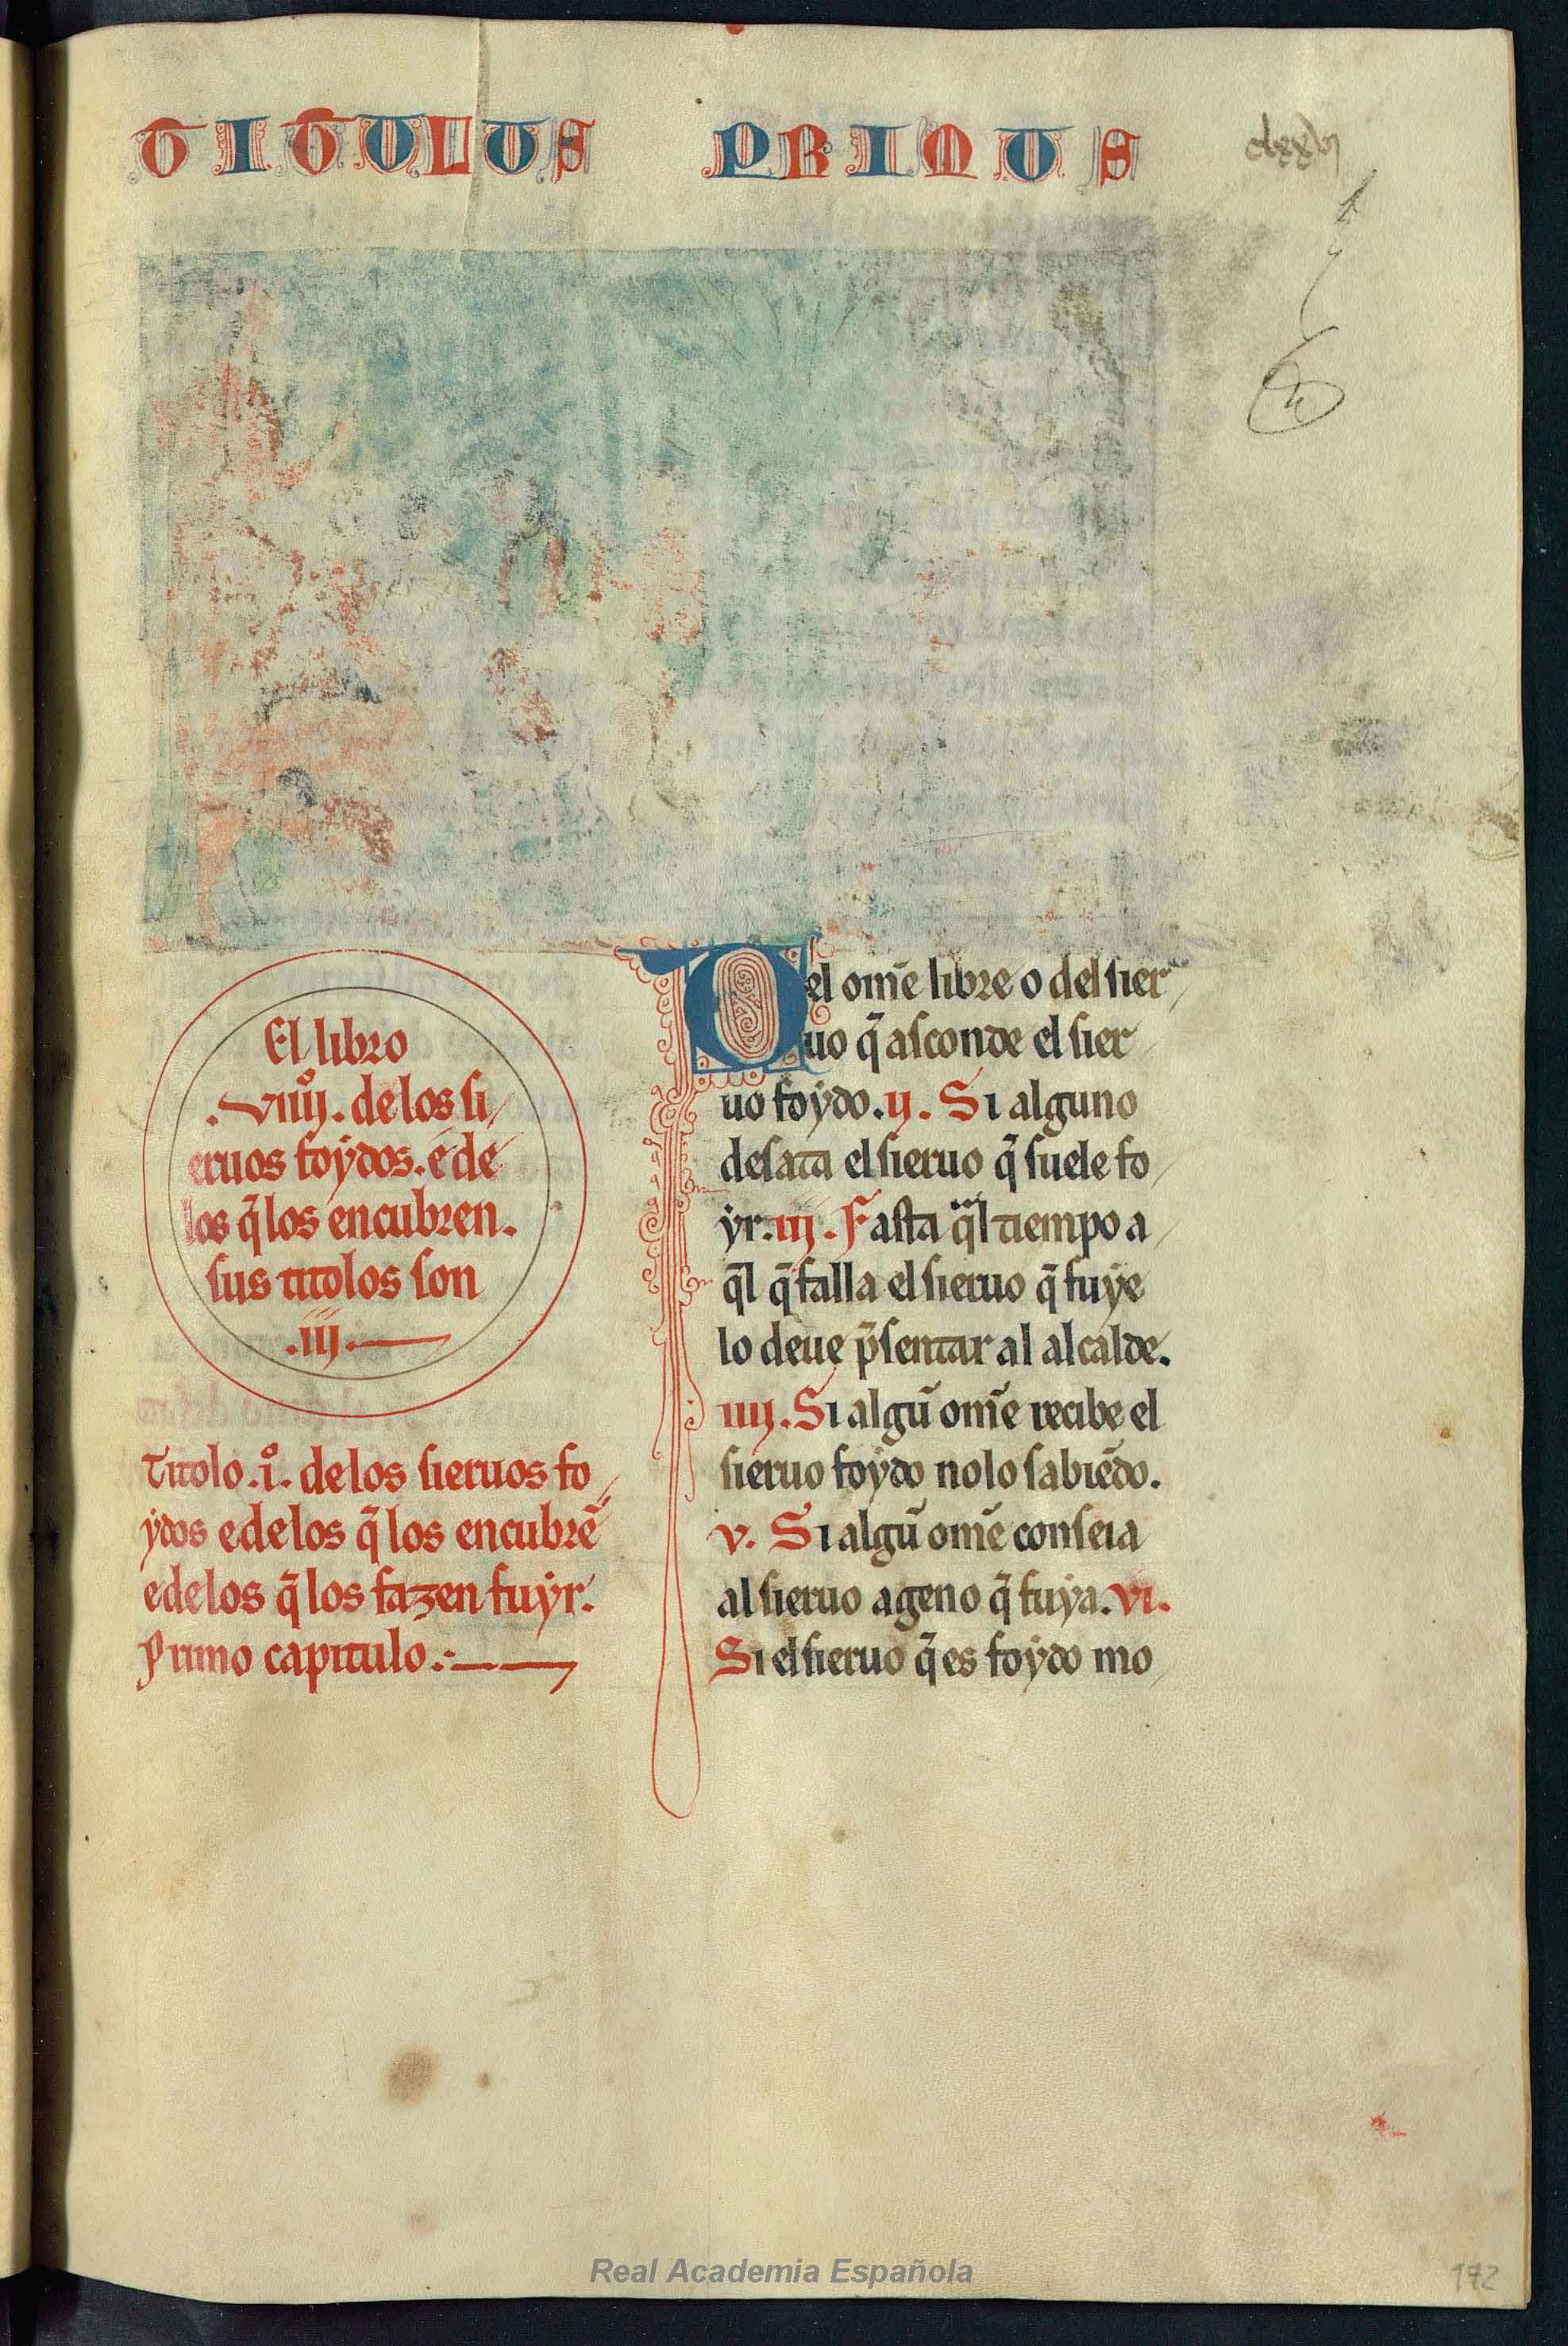 TITULUS PRIMUS
El libro
.viiijº. de los si
eruos foẏdos. e de
los q̃ los encubren.
sus titolos son
.iij.
Titolo .iº. de los sieruos fo
ẏdos e de los q̃ los encubrẽ
e de los q̃ los fazen fuẏr.
Primo capitulo.
Del om̃e libre o del sier
uo q̃ asconde el sier
uo foẏdo. ij. Si alguno
desata el sieruo q̃ suele fo
ẏr. iij. Fasta q̃l tiempo a
q̃l q̃ falla el sieruo q̃ fuẏe
lo deue p̃sentar al alcalde.
iiij. Si algũ om̃e recibe el
sieruo foẏdo no lo sabiẽdo.
v. Si algũ om̃e conseia
al sieruo ageno q̃ fuẏa. vi.
Si el sieruo q̃ es foẏdo mo
Real Academia Española
172